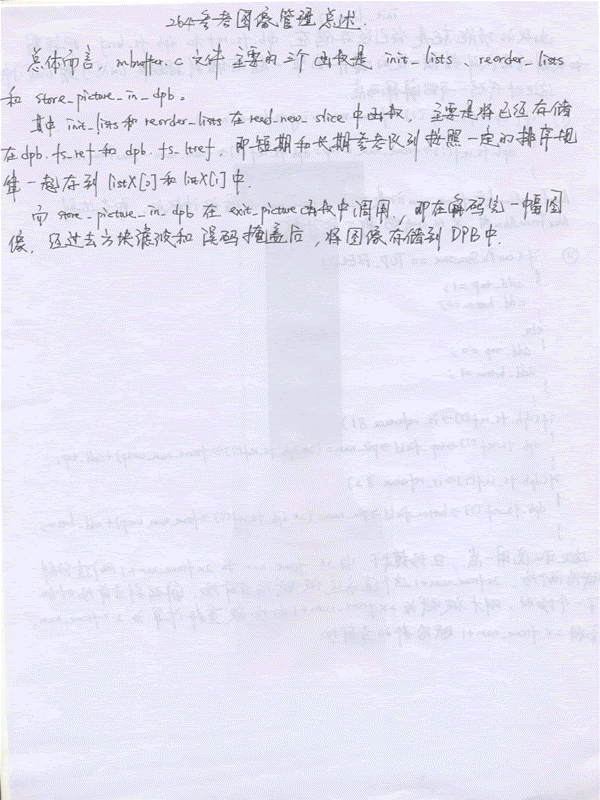 264参考图像管理总述.
总体而言, mbuffer.c 文件主要的三个函数是 init_lists reorder_lists
和 store_picture_in_dpb。
其中 init_lists 和 reorder_lists 在 read_new_slice 中函数, 主要是将已经存储
在dpb.fs_ref 和 dpb.fs_ltref, 即短期和长期参考队列按照一定的排序规
律一起存到 listX[0]和 listX[1]中.
而 store_picture_in_dpb 在 exit_picture函数中调用, 即在解码完一幅图
像, 经过去方块滤波和误码掩盖后, 将图像存储到DPB中.